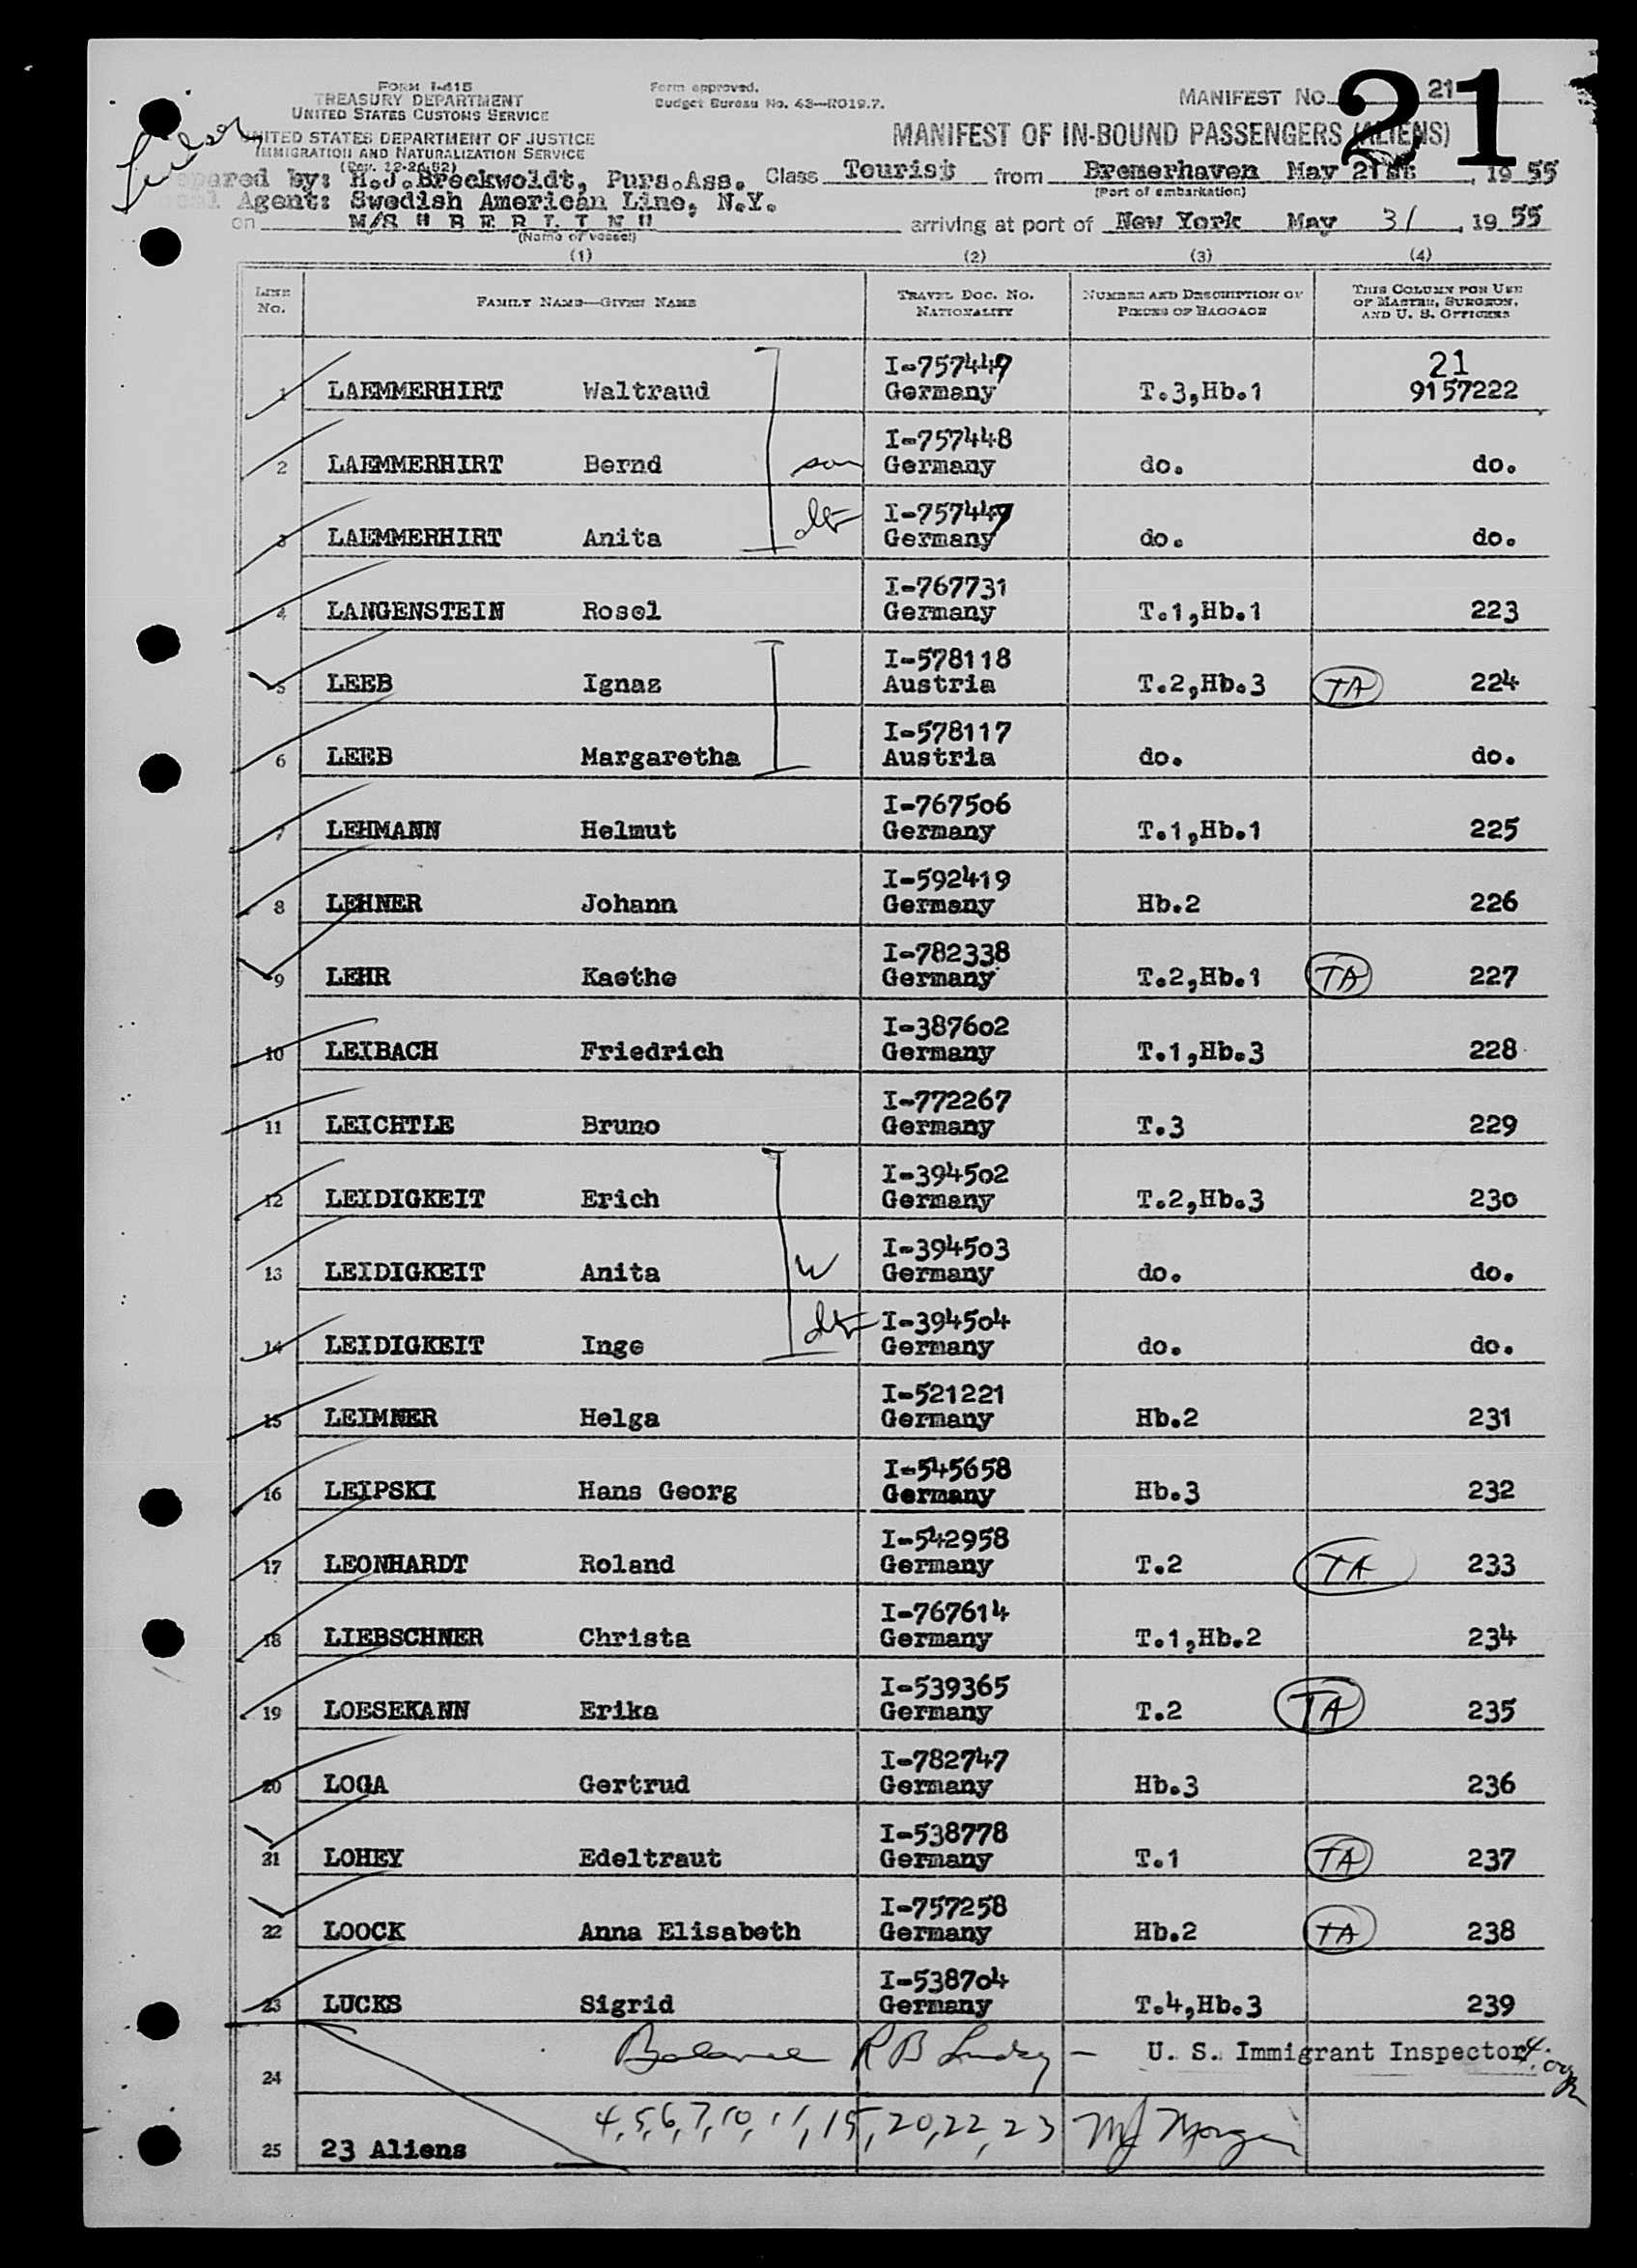 FORM I-415
TREASURY DEPARTMENT
UNITED STATES CUSTOMS SERVICE
UNITED STATES DEPARTMENT OF JUSTICE
IMMIGRATION AND NATURALIZATION SERVICE
(Rev. 12-26-52)
Form approved.
Budget Bureau No. 43—R019.7.
MANIFEST No. 21
21
MANIFEST OF IN-BOUND PASSENGERS (ALIENS)
Prepared by: H.J.Breckwoldt, Purs.Ass. Class Tourist from Bremerhaven May 21st , 19 55
(Port of embarkation)
Agent: Swedish American Line, N.Y.
on M/S " B E R L I N " arriving at port of New York May 31 , 19 55
(Name of vessel)
(1) (2) (3) (4)
LINE No. FAMILY NAME—GIVEN NAME TRAVEL DOC. NO. NATIONALITY NUMBER AND DESCRIPTION OF PIECES OF BAGGAGE THIS COLUMN FOR USE OF MASTER, SURGEON, AND U. S. OFFICERS
I-757449 21
1 LAEMMERHIRT Waltraud Germany T.3,Hb.1 9157222
I-757448
2 LAEMMERHIRT Bernd son Germany do. do.
I-757449
3 LAEMMERHIRT Anita dtr Germany do. do.
I-767731
4 LANGENSTEIN Rosel Germany T.1,Hb.1 223
I-578118
5 LEEB Ignaz Austria T.2,Hb.3 TA 224
I-578117
6 LEEB Margaretha Austria do. do.
I-767506
7 LEHMANN Helmut Germany T.1,Hb.1 225
I-592419
8 LEHNER Johann Germany Hb.2 226
I-782338
9 LEHR Kaethe Germany T.2,Hb.1 TA 227
I-387602
10 LEIBACH Friedrich Germany T.1,Hb.3 228
I-772267
11 LEICHTLE Bruno Germany T.3 229
I-394502
12 LEIDIGKEIT Erich Germany T.2,Hb.3 230
I-394503
13 LEIDIGKEIT Anita W Germany do. do.
dtr I-394504
14 LEIDIGKEIT Inge Germany do. do.
I-521221
15 LEIMNER Helga Germany Hb.2 231
I-545658
16 LEIPSKI Hans Georg Germany Hb.3 232
I-542958
17 LEONHARDT Roland Germany T.2 TA 233
I-767614
18 LIEBSCHNER Christa Germany T.1,Hb.2 234
I-539365
19 LOESEKANN Erika Germany T.2 TA 235
I-782747
20 LOGA Gertrud Germany Hb.3 236
I-538778
21 LOHEY Edeltraut Germany T.1 TA 237
I-757258
22 LOOCK Anna Elisabeth Germany Hb.2 TA 238
I-538704
23 LUCKS Sigrid Germany T.4,Hb.3 239
24 Balance R B – U. S. Immigrant Inspector
4,5,6,7,10,11,15,20,22,23 MJ Morgan
25 23 Aliens